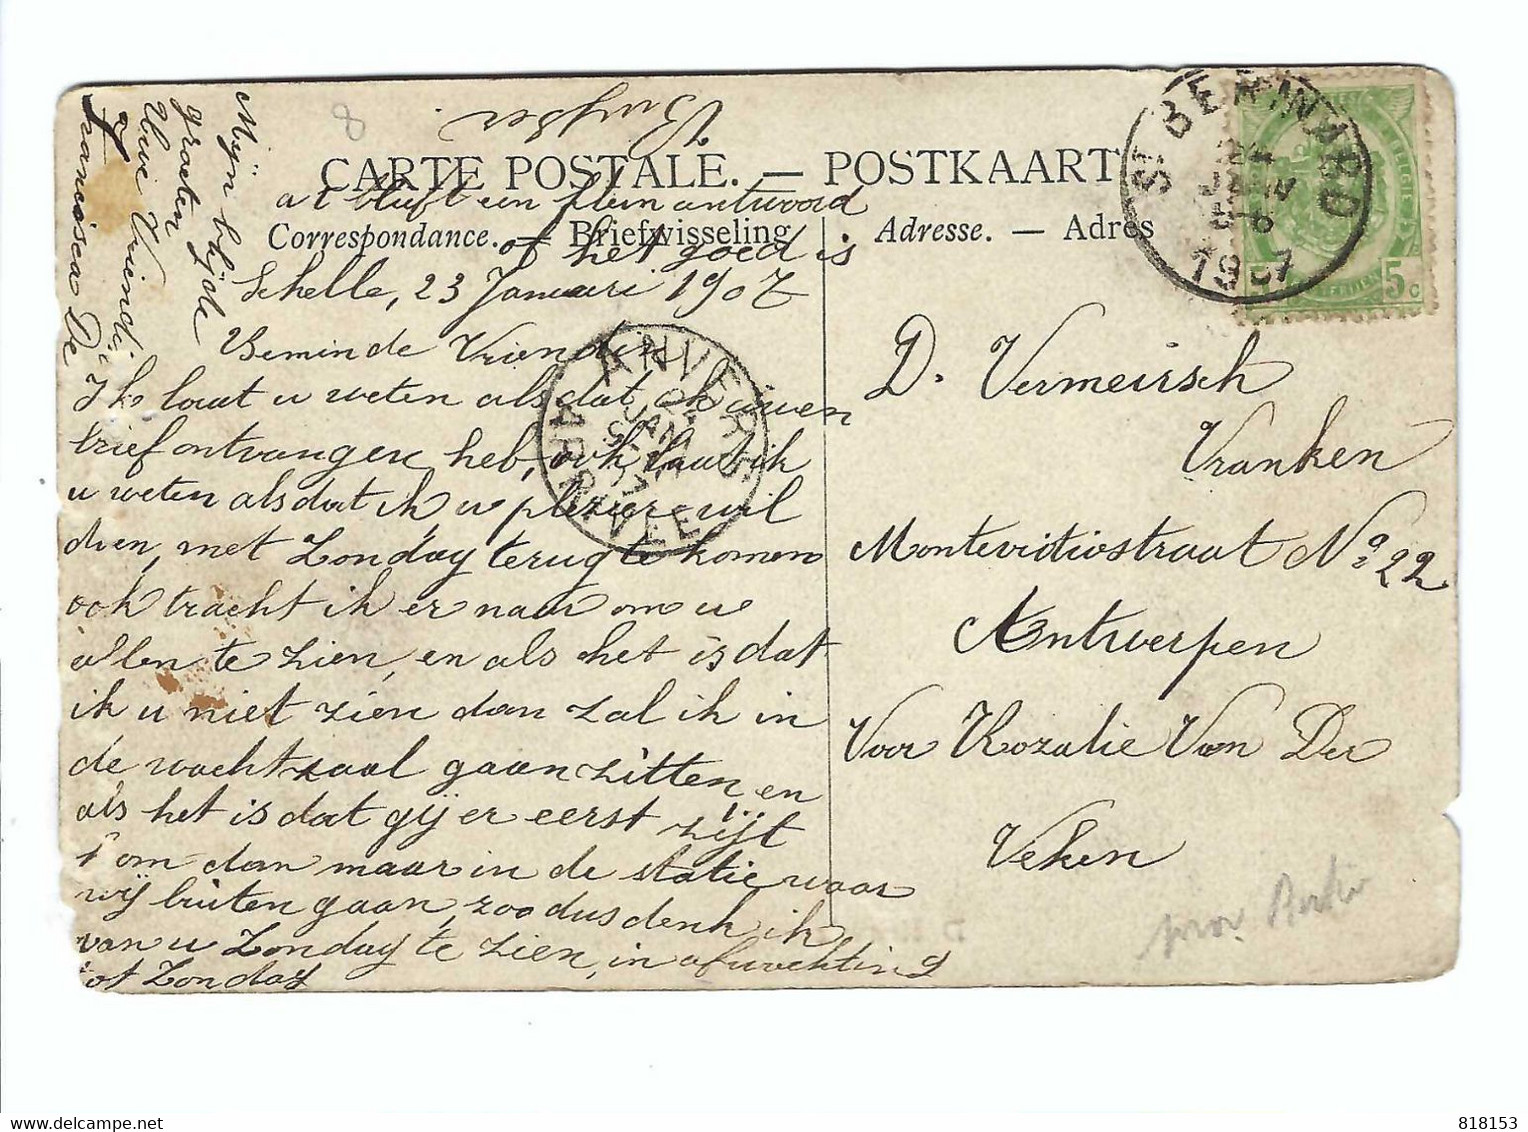 Buyser.
CARTE POSTALE. — POSTKAART
a t bleift een klein antwoord
Correspondance. — Briefwisseling
of het goed is
Adresse. — Adres
Schelle, 23 Januari 1907
Beminde Vriendin
Ik laat u weten als dat ik uwen
brief ontvangen heb, ook laat ik
u weten als dat ik u plezier wil
doen met Zondag terug te komen
ook tracht ik er naar om u
allen te zien, en als het is dat
ik u niet zien dan zal ik in
de wachtzaal gaan zitten, en
als het is dat gij er eerst zijt
kom dan maar in de statie waar
wij buiten gaan, zoo dus denk ik
van u Zondag te zien, in afwachting
tot Zondag
Mijn blijde
graeten
Uwe Vriendin
Francisca De
D. Vermeirsch
Vranken
Montevidiostraat No 22
Antwerpen
Voor Rozalie Van Der
Veken
ST BERNARD
24
JANV
1907
BELGIE
5c
ANVERS
24
JANV
ARRIVEE
8
prov
818153